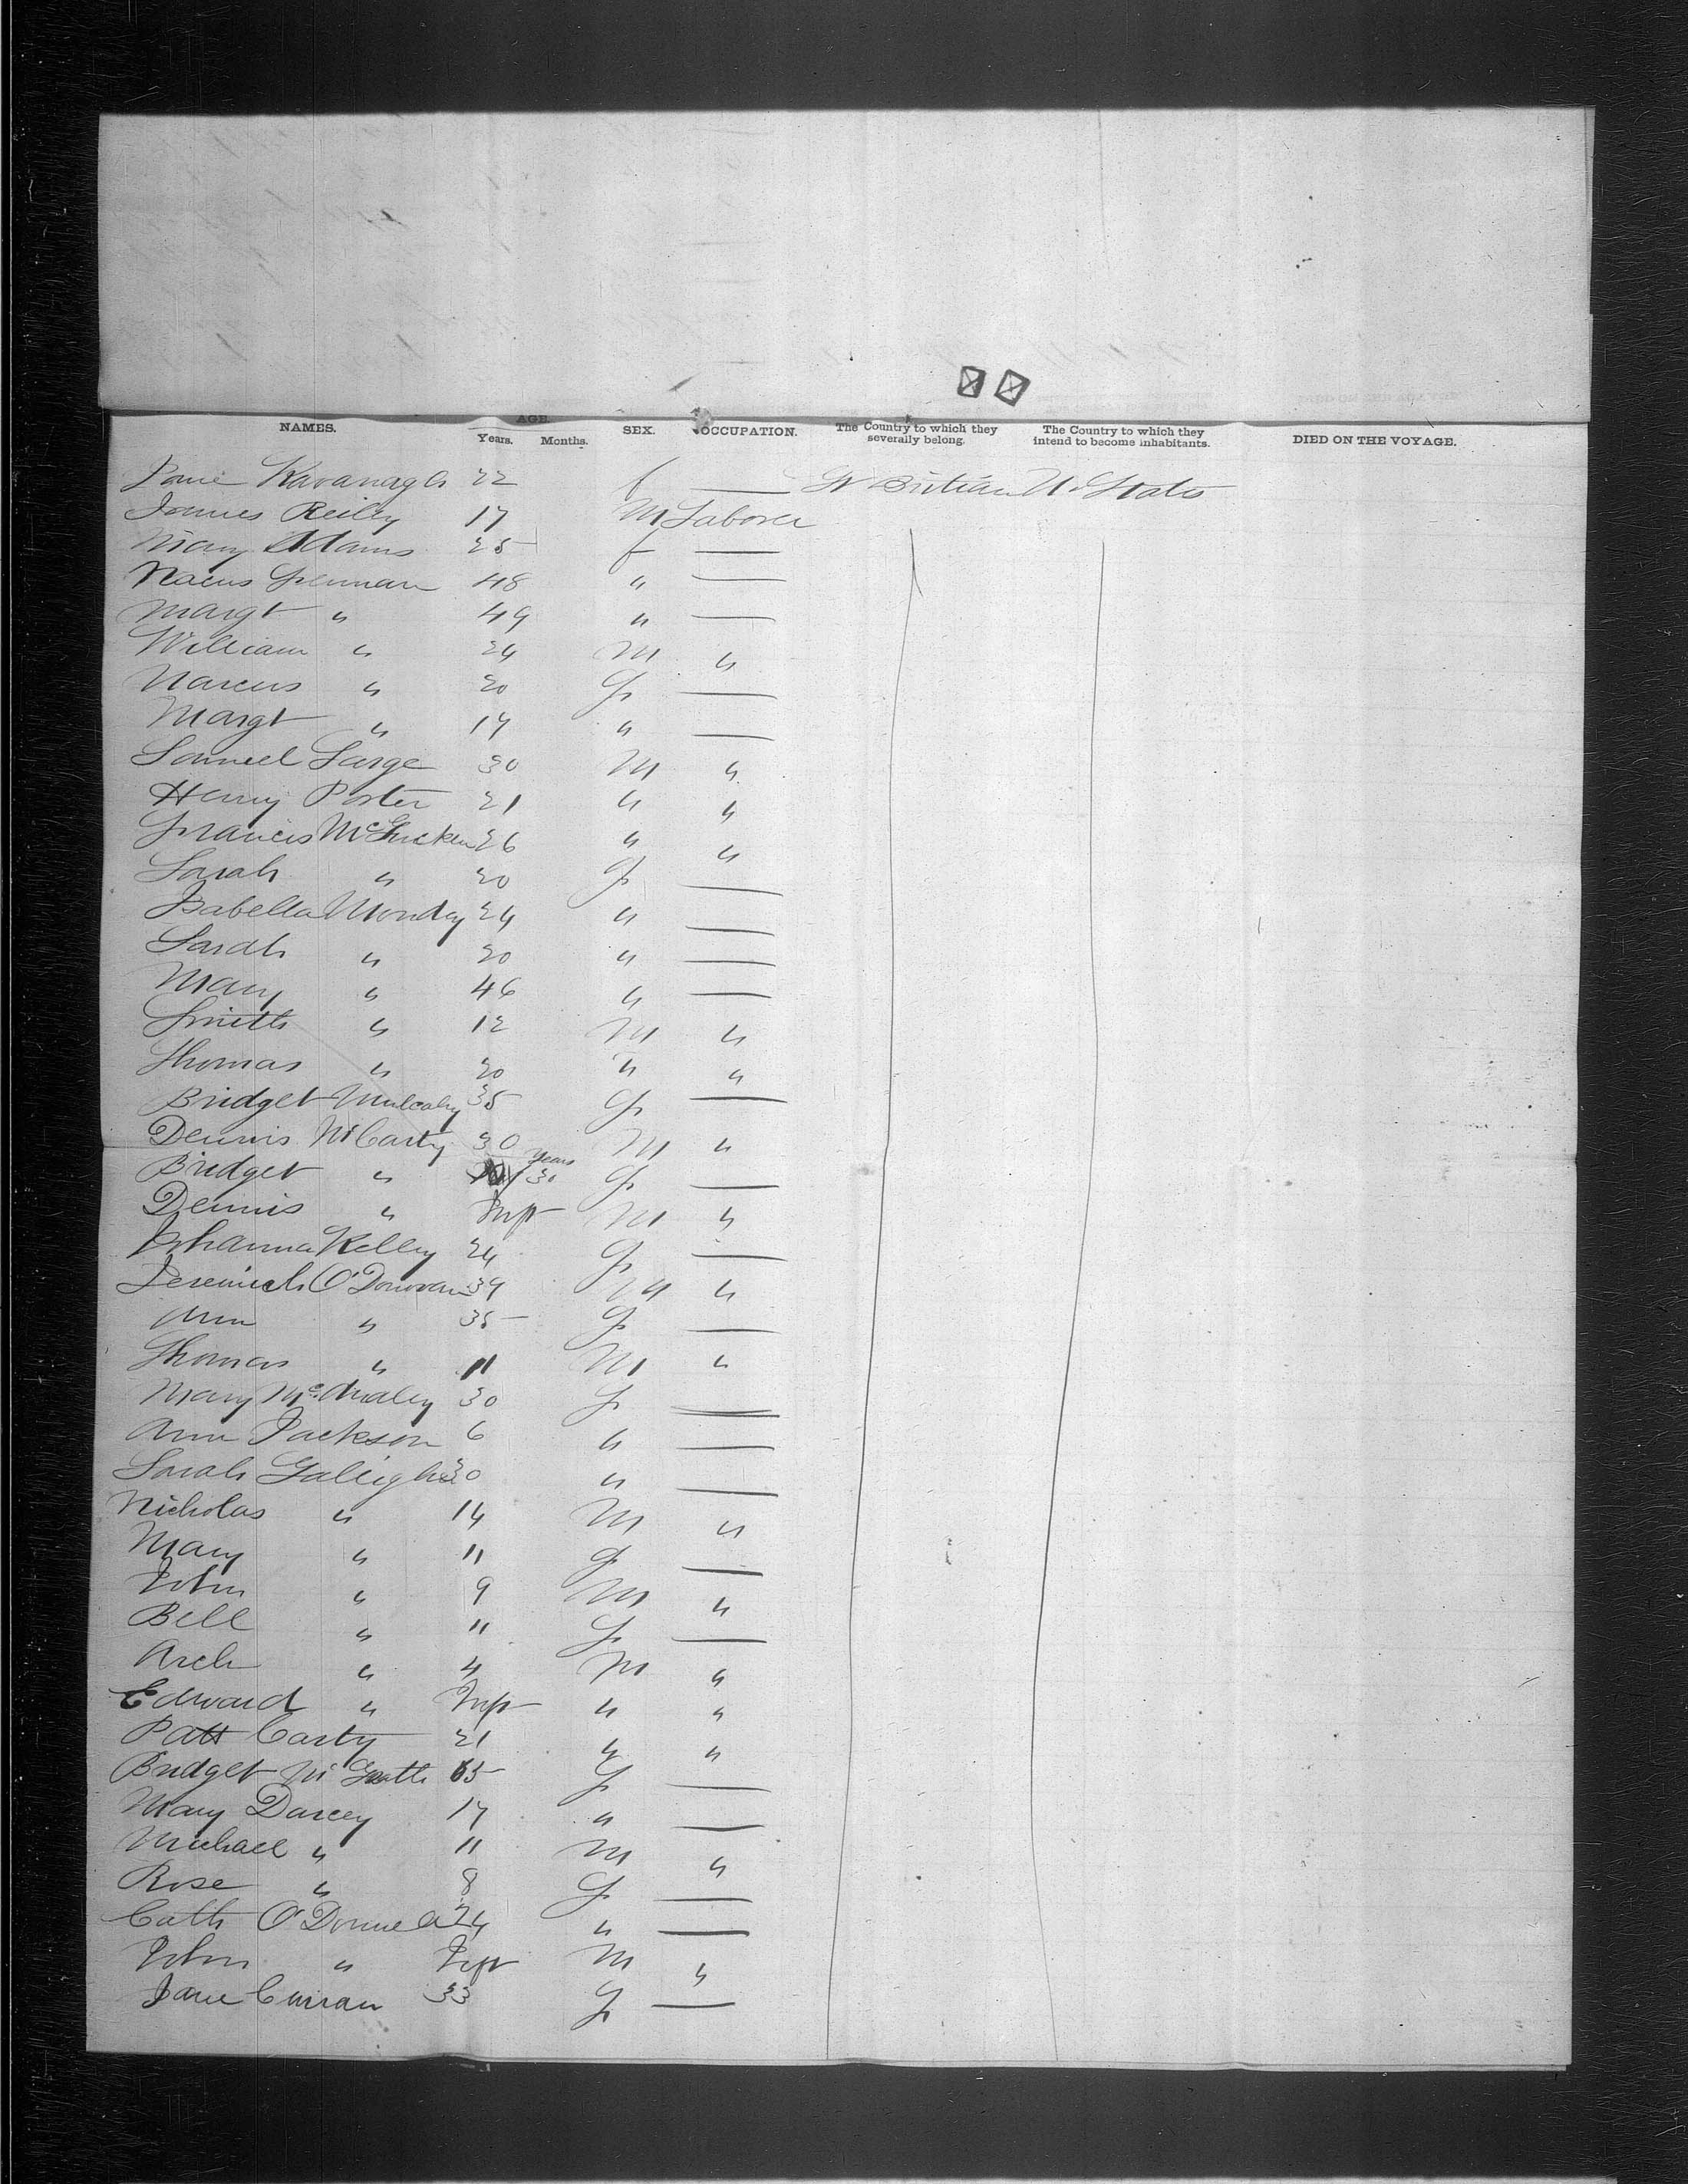 NAMES. AGE. Years. Months. SEX. OCCUPATION. The Country to which they severally belong. The Country to which they intend to become inhabitants. DIED ON THE VOYAGE.
Kavanagh 22 f — Gr Britian U. States
James Reiley 17 M Laborer
Mary Adams 25 f —
48 " —
Margt " 49 " —
William " 24 M "
" 20 F —
Margt " 17 " —
Samuel Large 30 M "
Henry Porter 21 " "
Francis McGucken 26 " "
Sarah " 20 F —
Isabella Monday 24 " —
Sarah " 20 " —
Mary " 46 " —
Smith " 12 M "
Thomas " 20 " "
Bridget Mulcahy 35 F —
Dennis McCarty 30 M "
Bridget " 30 years F —
Dennis " Inft M "
Johanna Kelley 24 F —
Jeremiah O'Donovan 39 M "
Ann " 35 F —
Thomas " 11 M "
Mary 30 F —
Ann Jackson 6 " —
Sarah 30 " —
Nicholas " 14 M "
Mary " 11 F —
John " 9 M "
Bell " 11 F —
Arch " 4 M "
Edward " Inft " "
Patt Carty 21 " "
Bridget McGrath 65 F —
Mary Darcey 17 " —
Michael " 11 M "
Rose " 8 F —
Cath O'Donnell 24 " —
John " Inft M "
Jane Curran 33 F —